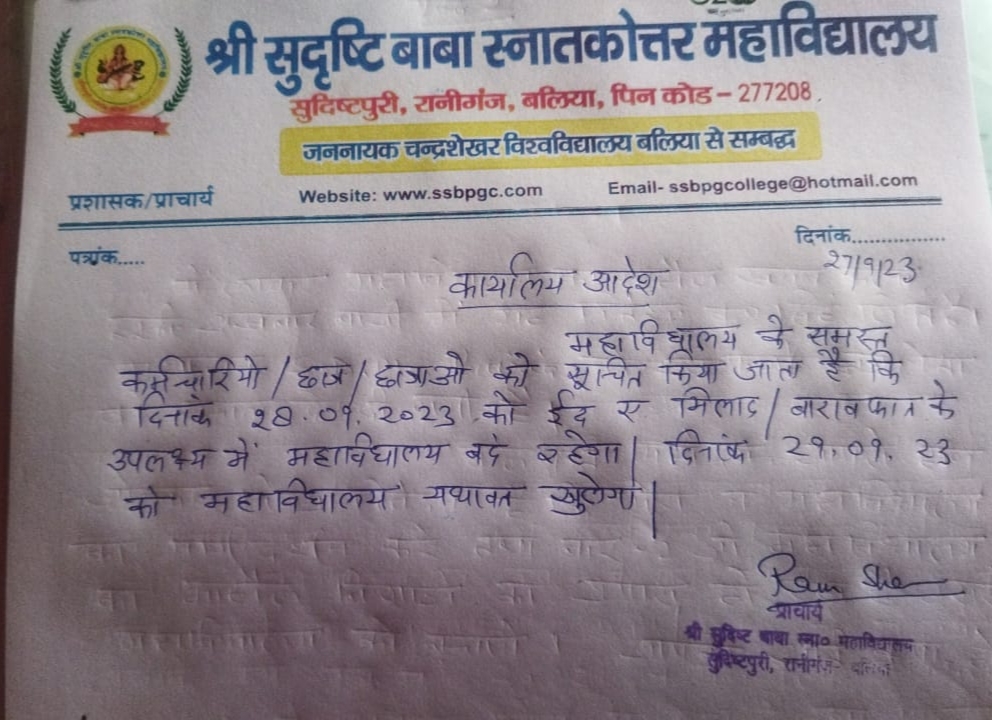 श्री सुदृष्टि बाबा स्नातकोत्तर महाविद्यालय
सुदिष्टपुरी, रानीगंज, बलिया, पिन कोड – 277208.
जननायक चन्द्रशेखर विश्वविद्यालय बलिया से सम्बद्ध
प्रशासक/प्राचार्य Website: www.ssbpgc.com Email- ssbpgcollege@hotmail.com
पत्रांक..... दिनांक................
27/9/23
कार्यालय आदेश
महाविद्यालय के समस्त
कर्मचारियो / छात्र / छात्राओ को सूचित किया जाता है कि
दिनांक 28.09.2023 को ईद ए मिलाद / बारावफात के
उपलक्ष्य में महाविद्यालय बंद रहेगा| दिनांक 29.09.23
को महाविद्यालय यथावत खुलेगा|
प्राचार्य
श्री सुदिष्ट बाबा स्ना० महाविद्यालय
सुदिष्टपुरी, रानीगंज- बलिया